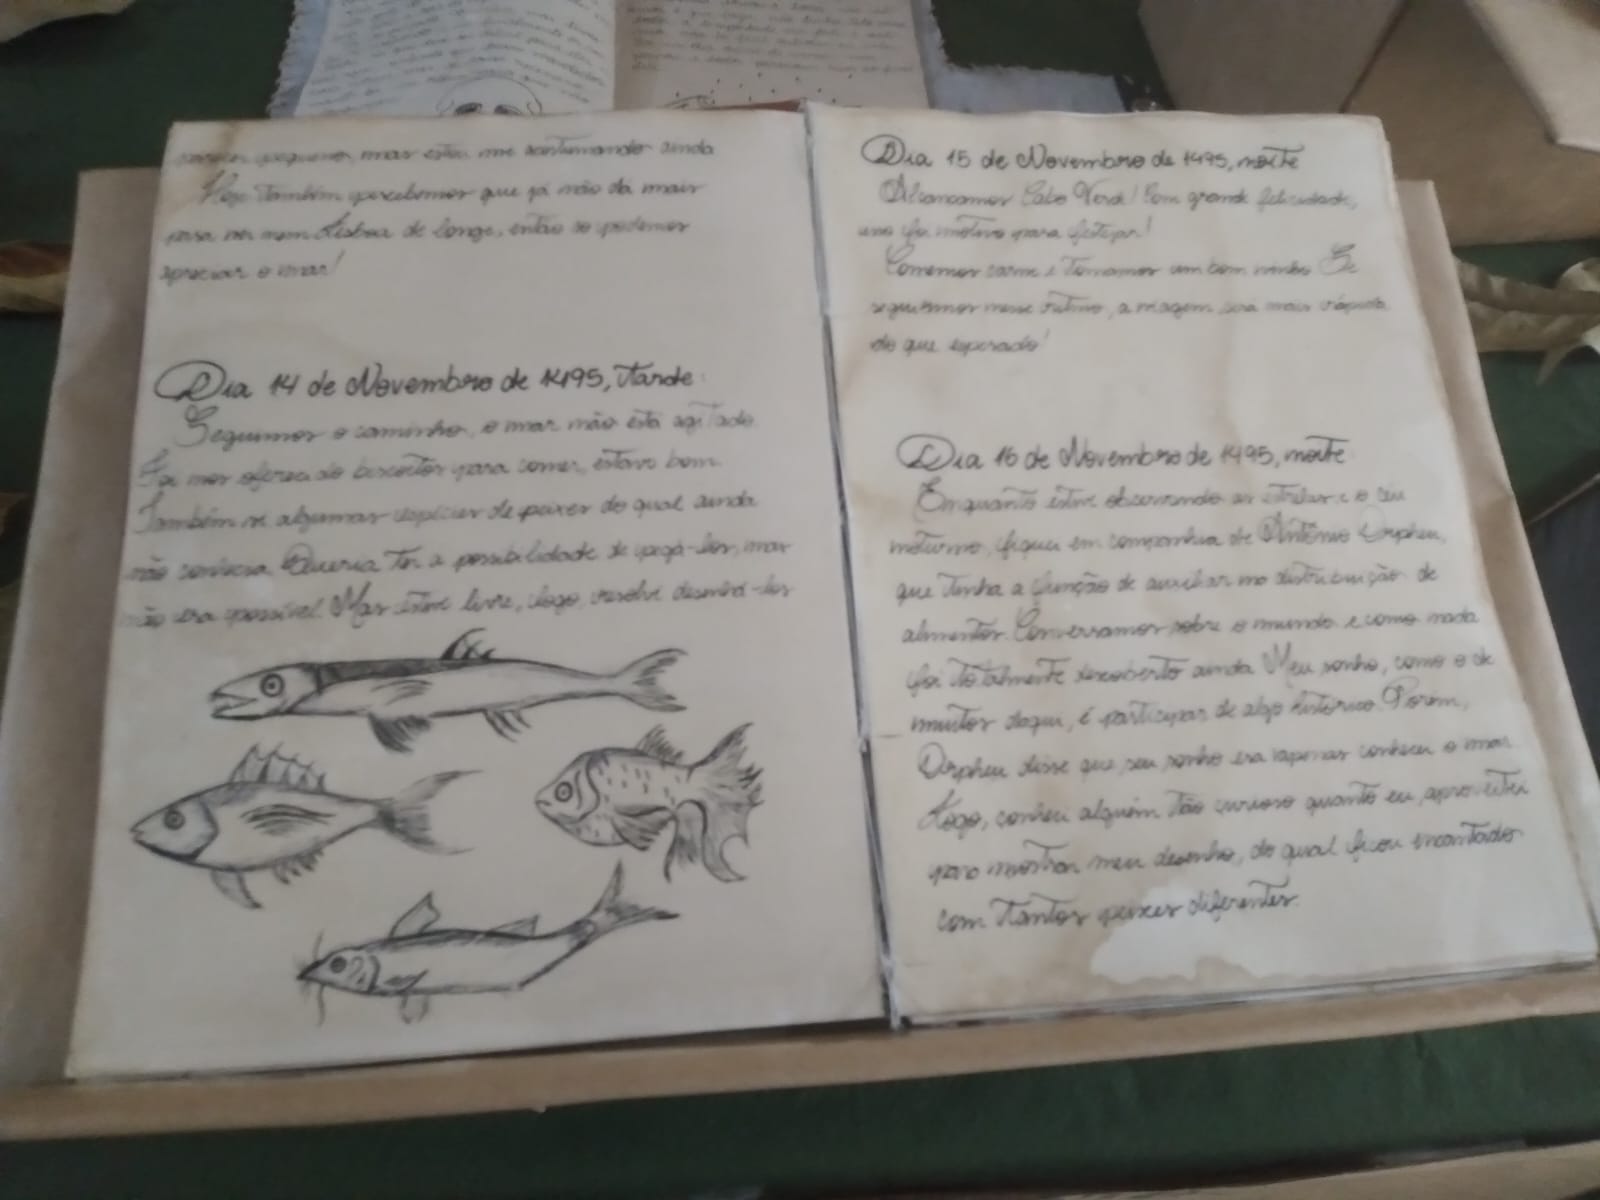 pequeno, mas estou me acostumando ainda
Hoje também percebemos que já não dá mais
para ver nem Lisboa de longe, então só podemos
apreciar o mar!
Dia 14 de Novembro de 1495, tarde:
Seguimos o caminho, o mar não está agitado.
Foi nos oferecido biscoitos para comer, estava bom.
Também vi algumas espécies de peixes do qual ainda
não conhecia. Queria ter a possibilidade de pegá-los, mas
não era possível. Mas estive livre, logo, resolvi desenhá-los
Dia 15 de Novembro de 1495, noite
Alcançamos Cabo Verde! Com grande felicidade,
isso foi motivo para festejar!
Comemos carne e tomamos um bom vinho. Se
seguirmos nesse ritmo, a viagem será mais rápida
do que esperado!
Dia 16 de Novembro de 1495, noite
Enquanto estive observando as estrelas e o céu
noturno, fiquei em companhia de Antônio Orpheu,
que tinha a função de auxiliar na distribuição de
alimentos. Conversamos sobre o mundo e como nada
foi totalmente descoberto ainda. Meu sonho, como o de
muitos daqui, é participar de algo histórico. Porém,
Orpheu disse que seu sonho era apenas conhecer o mar.
Logo, conheci alguém tão curioso quanto eu, aproveitei
para mostrar meu desenho, do qual ficou encantado
com tantos peixes diferentes.